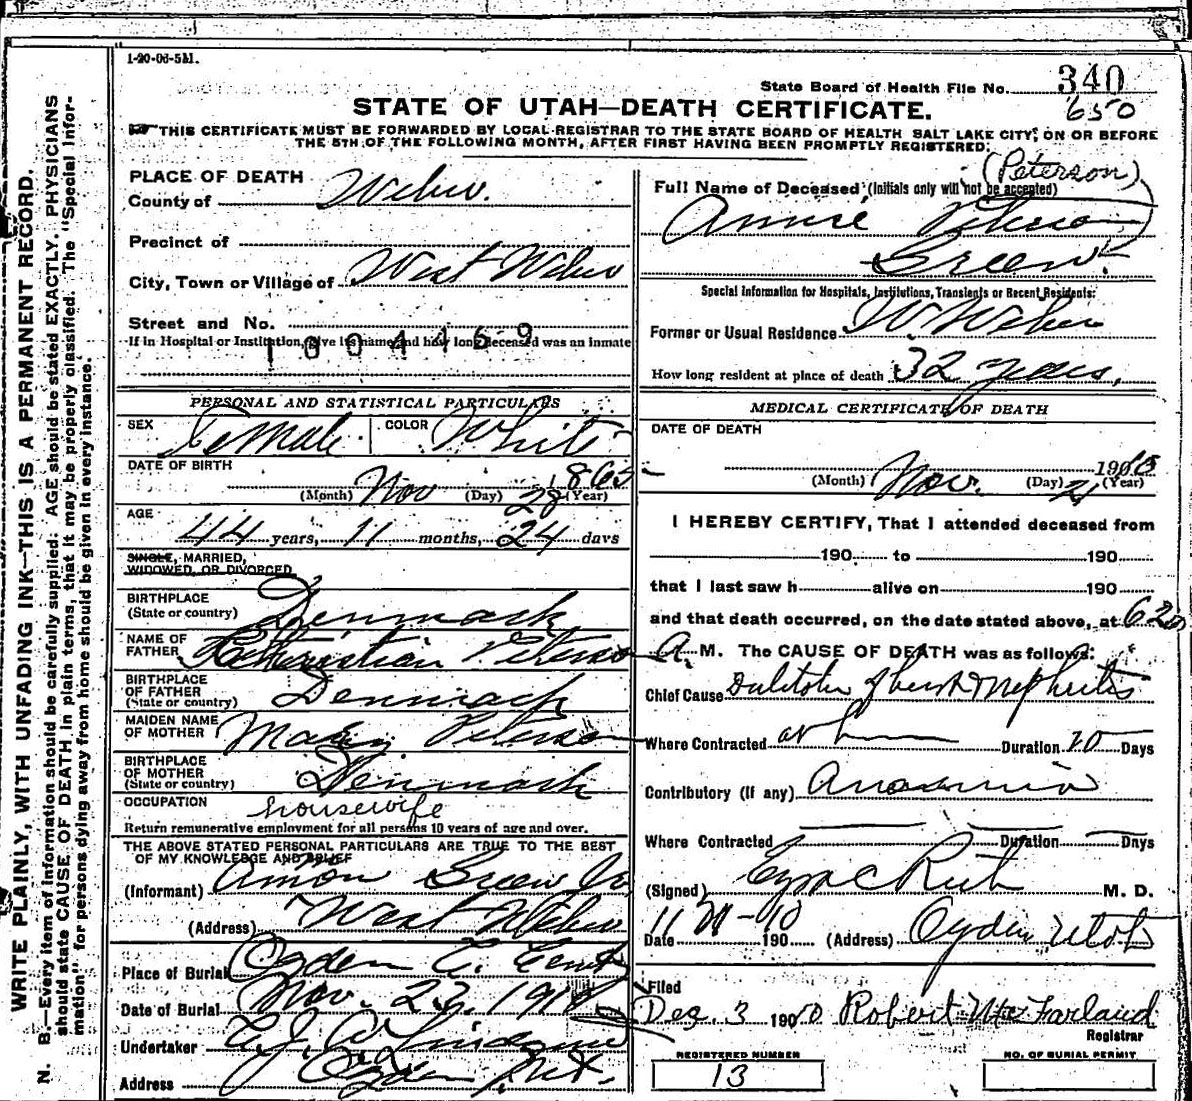 1-20-06-5M.
State Board of Health File No. 340
650
STATE OF UTAH—DEATH CERTIFICATE.
THIS CERTIFICATE MUST BE FORWARDED BY LOCAL REGISTRAR TO THE STATE BOARD OF HEALTH SALT LAKE CITY, ON OR BEFORE
THE 5TH OF THE FOLLOWING MONTH, AFTER FIRST HAVING BEEN PROMPTLY REGISTERED.
WRITE PLAINLY, WITH UNFADING INK—THIS IS A PERMANENT RECORD.
N. B.—Every item of information should be carefully supplied. AGE should be stated EXACTLY. PHYSICIANS
should state CAUSE OF DEATH in plain terms, that it may be properly classified. The "Special Infor-
mation" for persons dying away from home should be given in every instance.
PLACE OF DEATH
County of Weber.
Precinct of
City, Town or Village of West Weber
Street and No.
If in Hospital or Institution, give its name and how long deceased was an inmate
1004469
PERSONAL AND STATISTICAL PARTICULARS
SEX Female
COLOR White
DATE OF BIRTH
(Month) Nov (Day) 28 1865 (Year)
AGE
44 years, 11 months, 24 days
SINGLE, MARRIED,
WIDOWED, OR DIVORCED
BIRTHPLACE
(State or country) Denmark
NAME OF
FATHER Christian Peterson
BIRTHPLACE
OF FATHER
(State or country) Denmark
MAIDEN NAME
OF MOTHER Mary Peterson
BIRTHPLACE
OF MOTHER
(State or country) Denmark
OCCUPATION housewife
Return remunerative employment for all persons 10 years of age and over.
THE ABOVE STATED PERSONAL PARTICULARS ARE TRUE TO THE BEST
OF MY KNOWLEDGE AND BELIEF
(Informant) Amon Green Jr
(Address) West Weber
Place of Burial Ogden C. Cemt
Date of Burial Nov. 23, 1910
Undertaker
Address Ogden, Ut.
Full Name of Deceased (Initials only will not be accepted) (Peterson)
Annie Peterson
Green.
Special Information for Hospitals, Institutions, Transients or Recent Residents:
Former or Usual Residence W. Weber
How long resident at place of death 32 years,
MEDICAL CERTIFICATE OF DEATH
DATE OF DEATH
(Month) Nov. (Day) 21 1910 (Year)
I HEREBY CERTIFY, That I attended deceased from
190 to 190
that I last saw h alive on 190
and that death occurred, on the date stated above, at 6 20
A. M. The CAUSE OF DEATH was as follows:
Chief Cause Nephritis
Where Contracted at Duration 10 Days
Contributory (if any) Anaemia
Where Contracted Duration Days
(Signed) M. D.
Date 190 (Address) Ogden Utah
Filed
Dec. 3 1910 Robert McFarland
Registrar
REGISTERED NUMBER
13
NO. OF BURIAL PERMIT